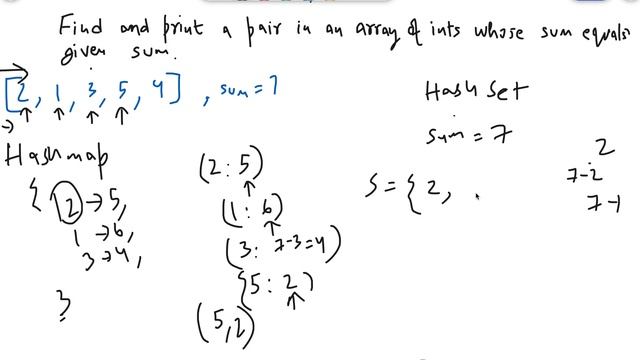 Find and print a pair in an array of ints whose sum equals
given sum.
[2, 1, 3, 5, 4] , sum = 7
Hashmap
{ 2 → 5,
1 → 6,
3 → 4,
}
(2: 5)
(1: 6)
(3: 7-3=4)
{5: 2)
(5,2)
Hash Set
sum = 7
S = { 2,
2
7-2
7-1